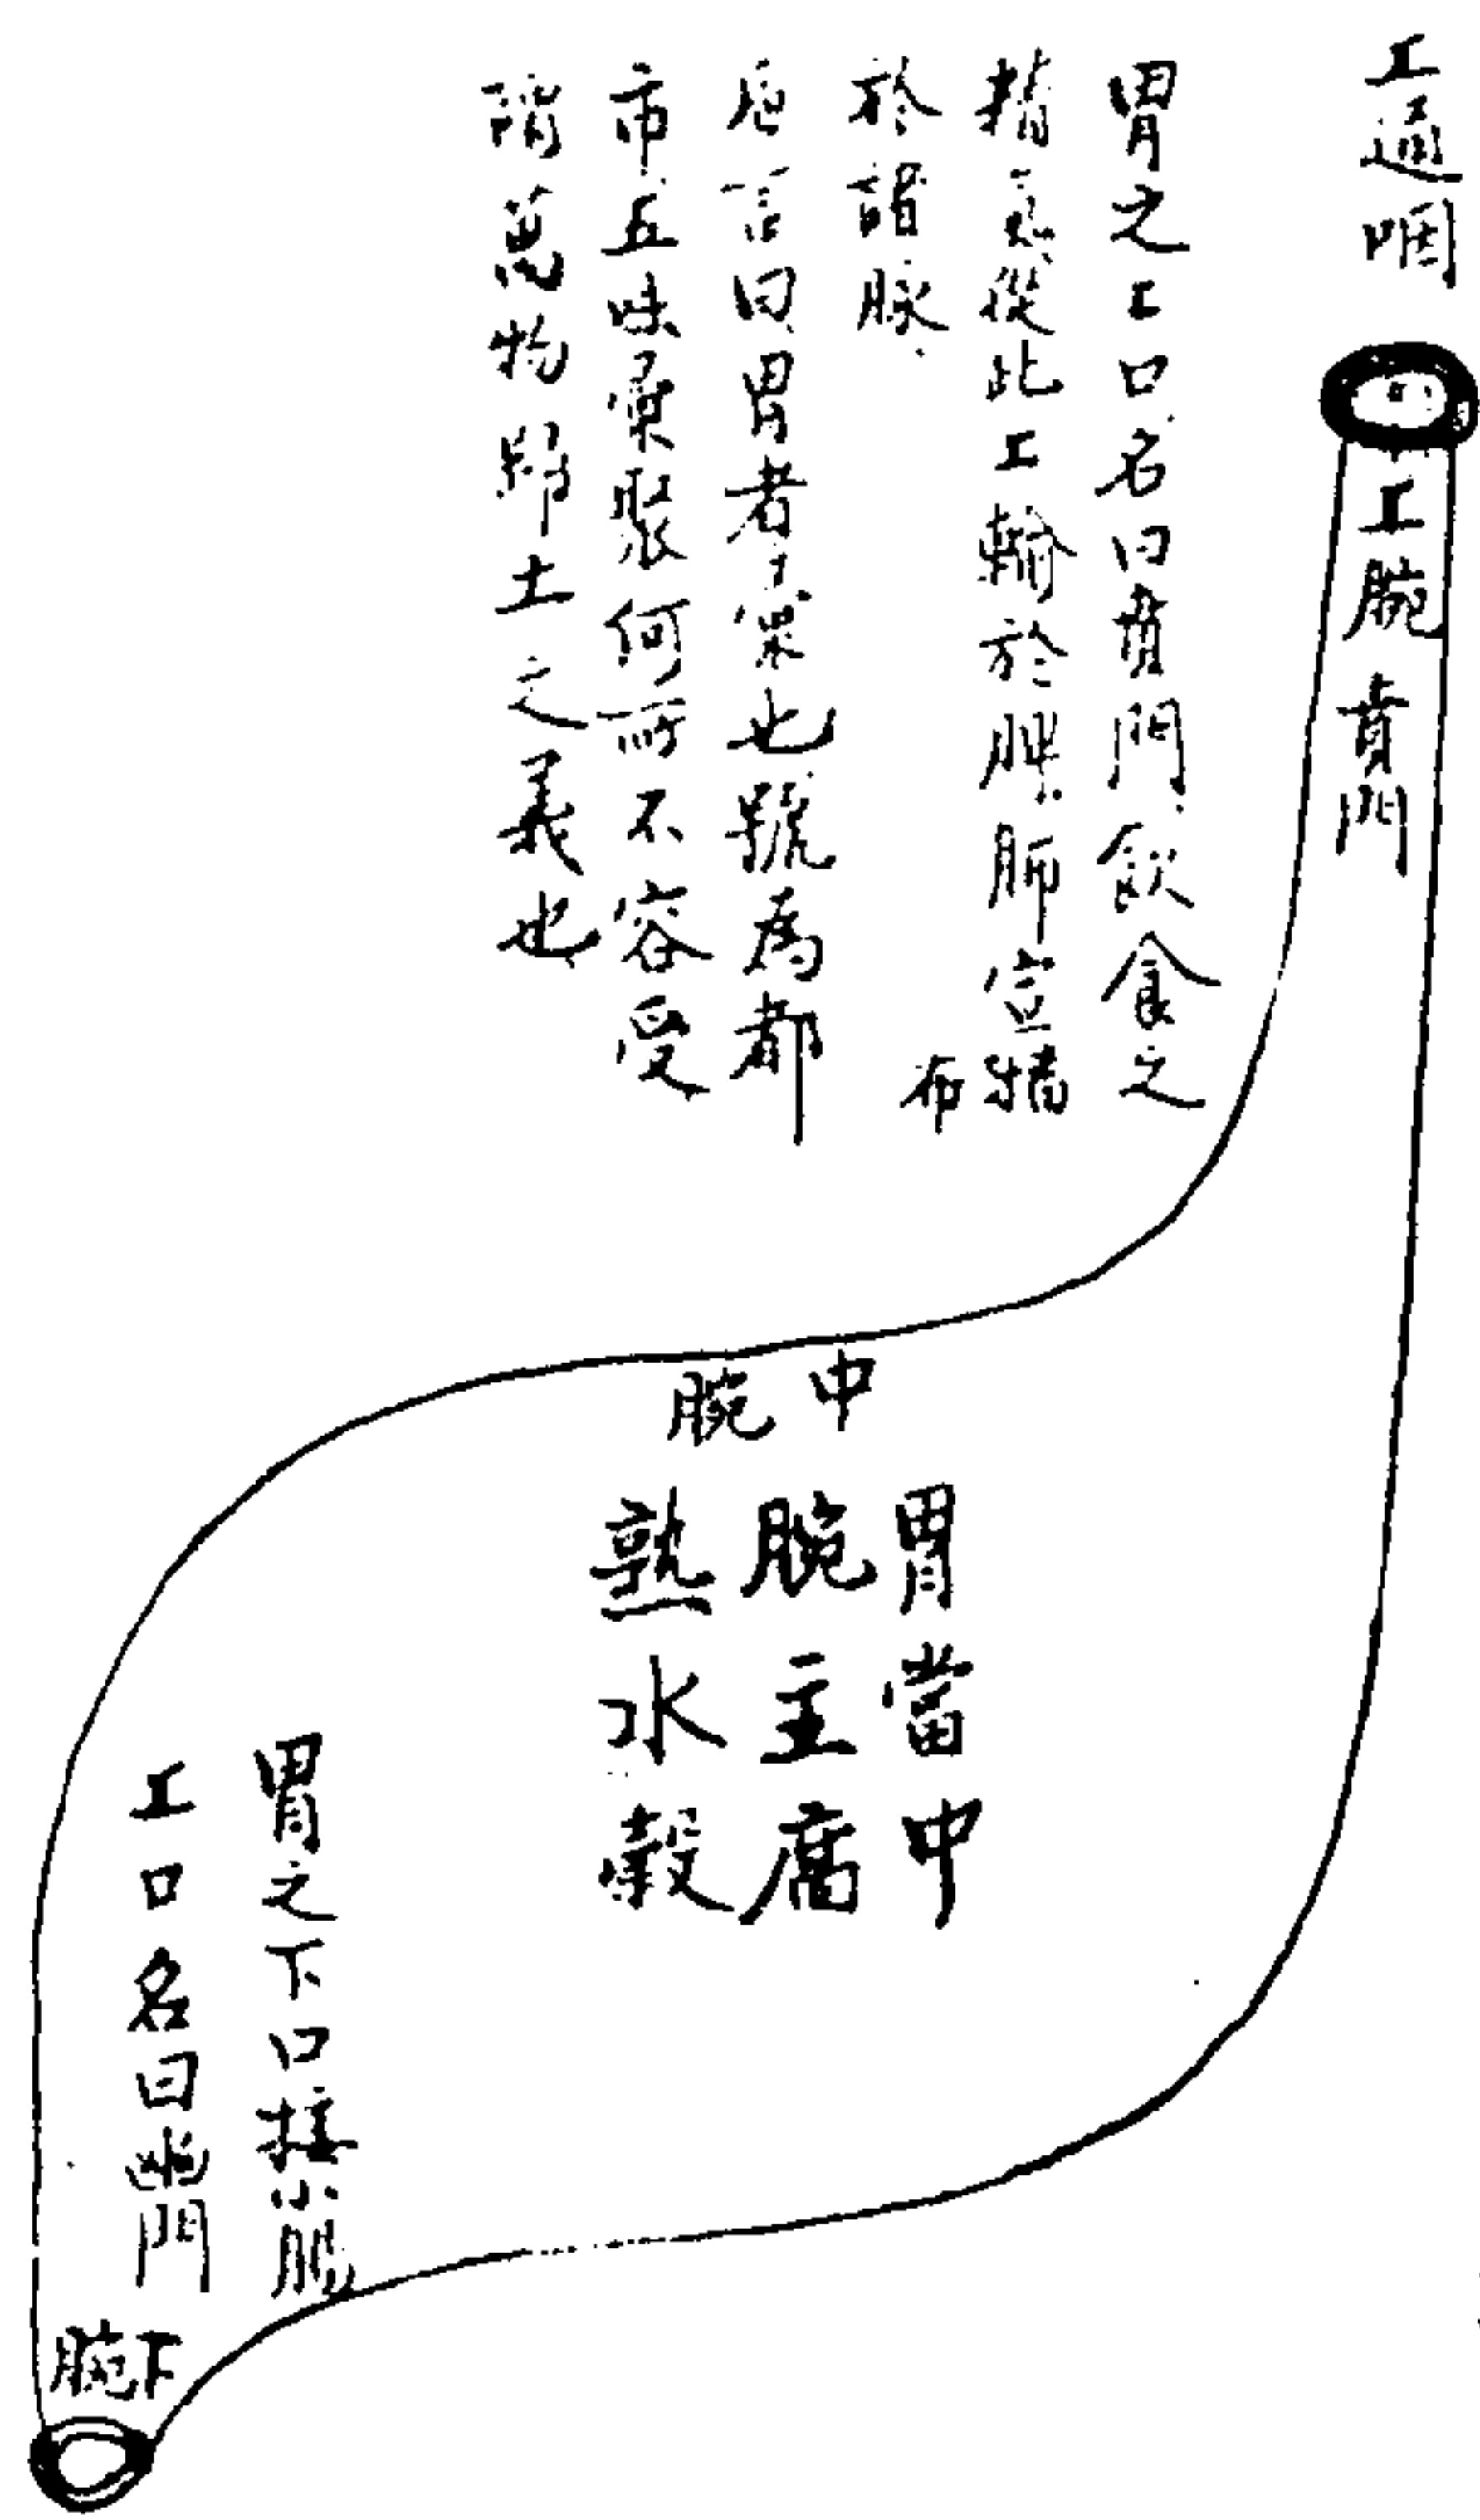 上通咽
上脘賁門
胃之上口名曰賁門飲食之
精氣從此上輸於脾肺宣播
布
於諸脉
言曰胃者彙也號為都
市五味彙聚何所不容受
納萬物歸土之義也
中脘
胃當中
脘主腐
熟水穀
胃之下口接小腸
上口名曰幽門
下脘